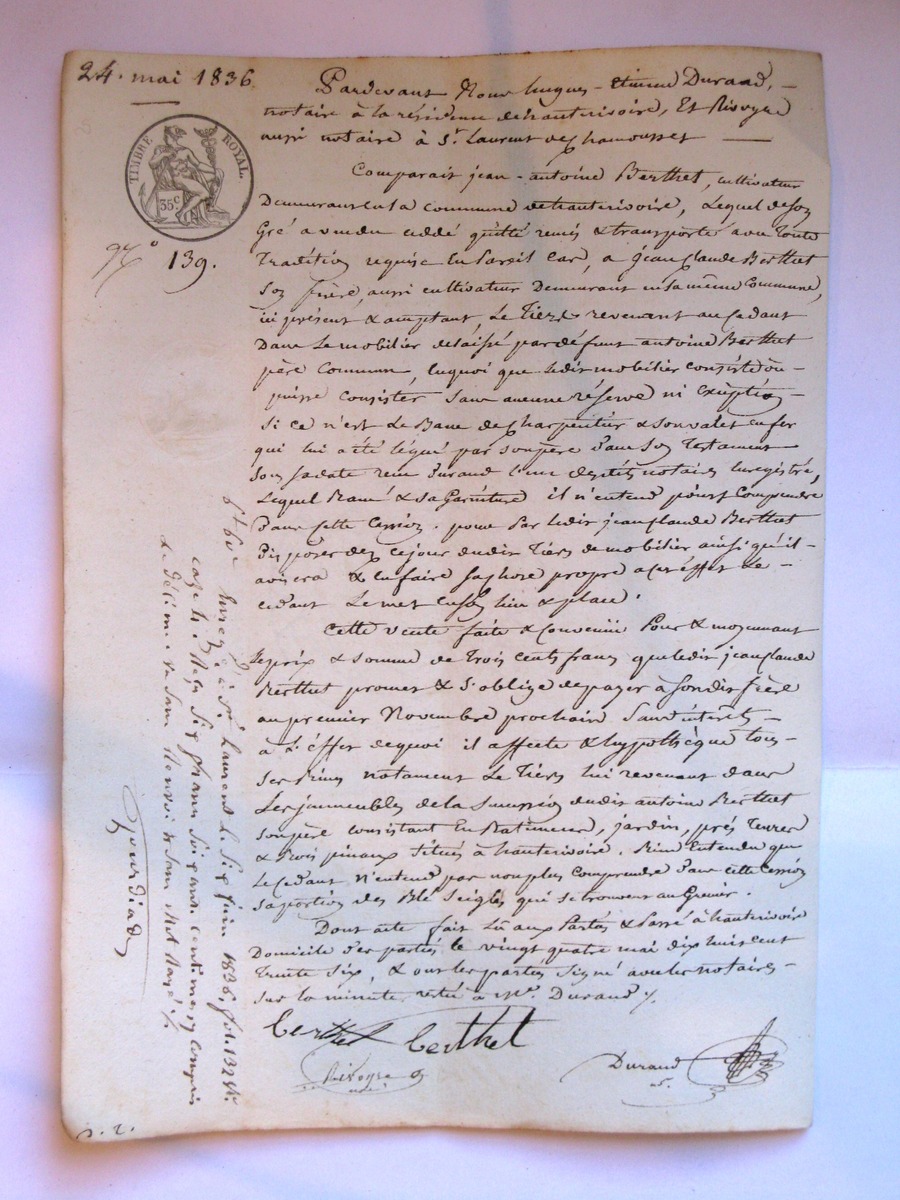 24. mai 1836.
TIMBRE ROYAL.
35c
N.o 139.
Pardevant Nous hugues-Etienne Durand, -
notaire à la résidence de hauterivoire, Et Rivoyre
aussi notaire à St. Laurent de Chamousset
Comparait jean-antoine Berthet, cultivateur
Demeurant en la commune de hauterivoire, Lequel de son
Gré a vendu cédé quitté remis & transporté avec toute
Tradition requise En Pareil Cas, a jean claude Berthet
Son frère, aussi cultivateur Demeurant en la même Commune,
ici présent & acceptant Le Tiers revenant au cédant
Dans Le mobilier delaissé par défunt antoine Berthet
père Commun, En quoi que ledit mobilier consiste ou -
puisse Consister Sans aucune réserve ni Exception -
Si ce n'est Le Banc de Charpentier & son valet en fer
qui lui a été légué par son père Dans Son Testament
Sous sa date reçu Durand l'un desdits notaires Enregistré,
Lequel Banc & sa Garniture il n'entend point Comprendre
Dans Cette Cession. pour Par ledit jean claude Berthet
Disposer dez ce jour dudit Tiers de mobilier ainsi qu'il -
avisera & en faire Sa chose propre a cet effet Le -
cédant Le met en son lieu & place.
Cette vente faite & Convenue Pour & moyennant
Le prix & somme de Trois Cents francs que ledit jean claude
Berthet promet & S'oblige de payer à Son dit frère
au premier Novembre prochain Sans intérêts -
à L'éffet de quoi il affecte & hypothèque tous -
Ses Biens notament Le Tiers lui revenant dans
Les jmmeubles de la Succession dudit antoine Berthet
son père consistant En Batiments, jardin, prés Terres
& Bois pinaux Situés à hauterivoire. Bien Entendu que
Le Cédant n'entend pas non plus Comprendre Dans cette Cession
sa portion des Blé Seigle qui se trouvent au Grenier.
Dont acte fait Lu aux Parties & Passé à hauterivoire
Domicile des parties le vingt quatre mai dix huit cent
Trente Six, & ont les parties Signé avec les notaires -
Sur la minute restée à Me. Durand /.
Berthet Berthet
Rivoyre
Durand
no.
Enreg. à St. Laurent le Six juin 1836, fol. 132
case 4. Reçu Six francs Soixante centimes y compris
le Décime
Gourdiad